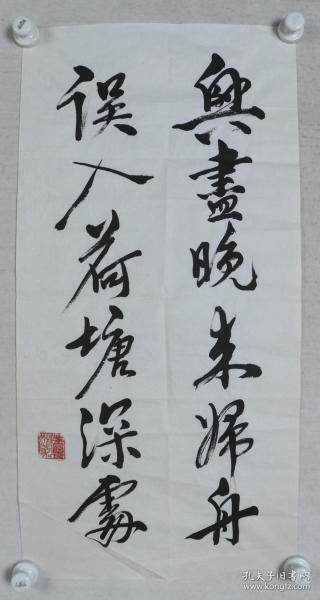 興盡晚来歸舟
误入荷塘深處
孔夫子旧书网
kongfz.com